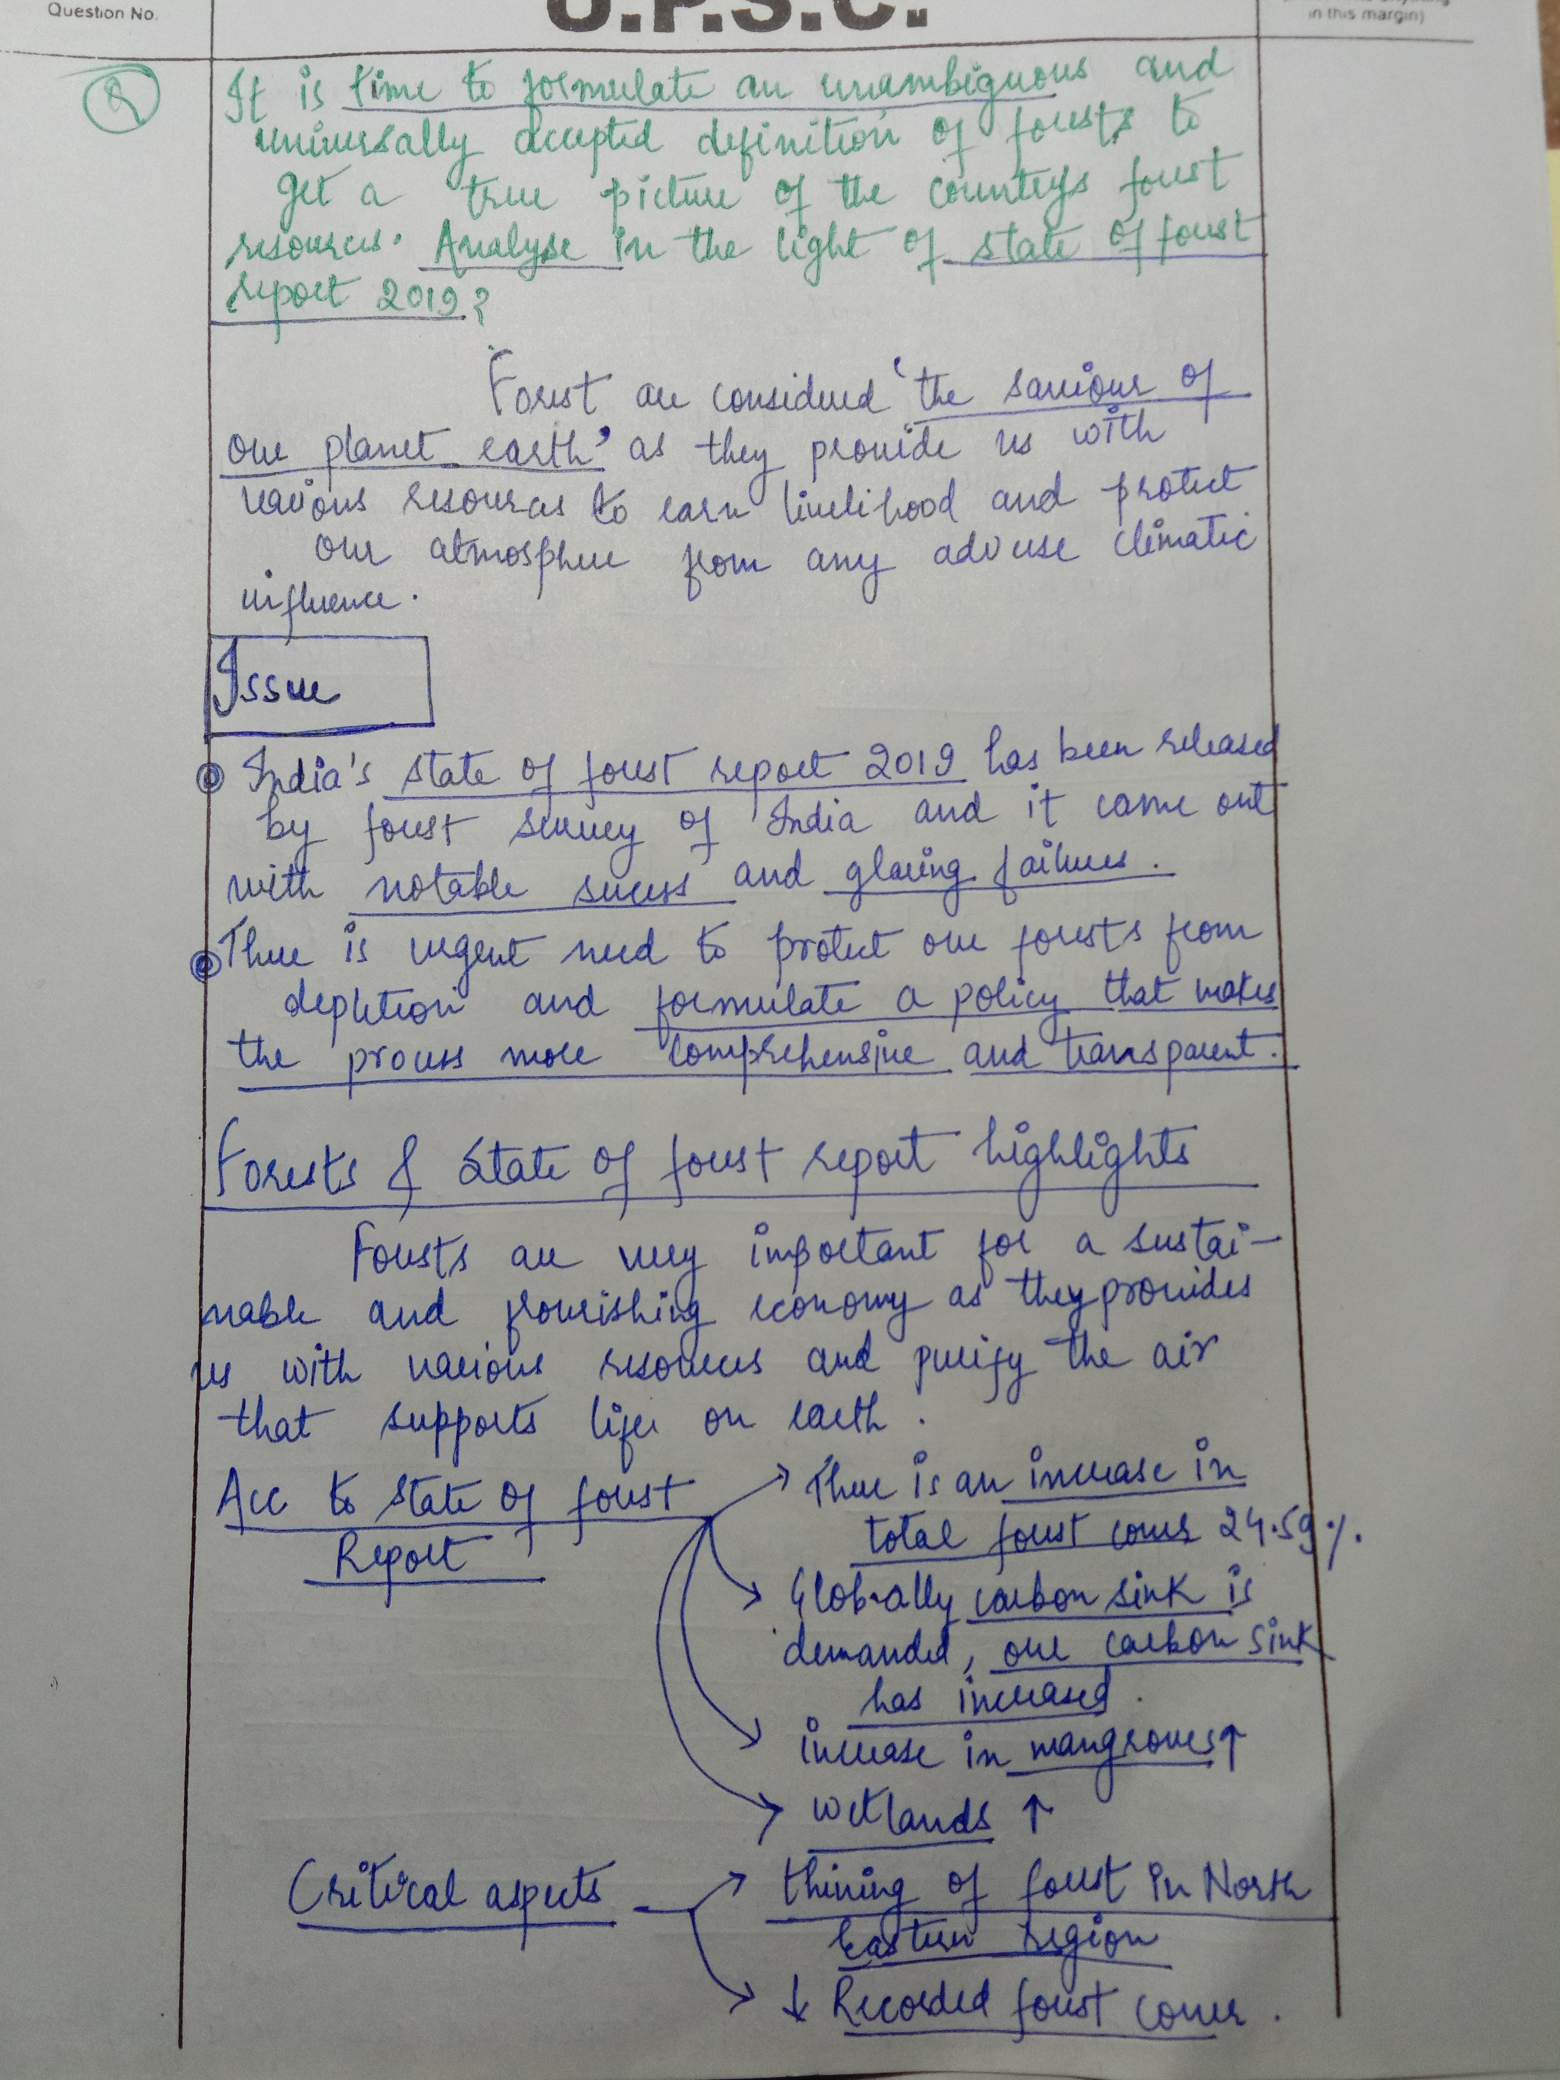 Question No.
U.P.S.C.
in this margin)
Q
It is time to formulate an unambiguous and
universally accepted definition of forests to
get a true picture of the countrys forest
resources. Analyse in the light of state of forest
report 2019?
Forest are considered 'the saviour of
our planet earth' as they provide us with
various resources to earn livelihood and protect
our atmosphere from any adverse climatic
influence.
Issue
India's state of forest report 2019 has been released
by forest survey of India and it came out
with notable sucess and glaring failures.
There is urgent need to protect our forests from
depletion and formulate a policy that makes
the process more comprehensive and transparent.
Forests & State of forest report highlights
Forests are very important for a sustai-
nable and flourishing economy as they provides
us with various resources and purify the air
that supports life on earth.
Acc to state of forest
Report
There is an increase in
total forest cover 24.59%.
Globally carbon sink is
demanded, our carbon sink
has increased.
increase in mangroves↑
wetlands ↑
Critical aspects
thining of forest in North
Eastern region
↓ Recorded forest cover.